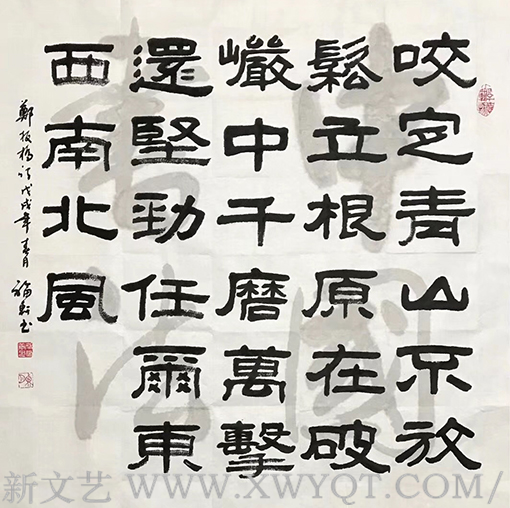 咬定青山不放
鬆立根原在破
巗中千磨萬擊
還堅勁任爾東
西南北風
鄭板橋詩戊戌年春月
中國
書法
新文艺 WWW.XWYQT.COM/